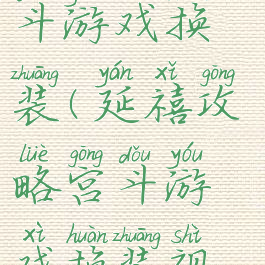 斗游戏换
zhuāng yán xǐ gōng
装(延禧攻
lüè gōng dǒu yóu
略宫斗游
xì huàn zhuāng shì
戏换装视